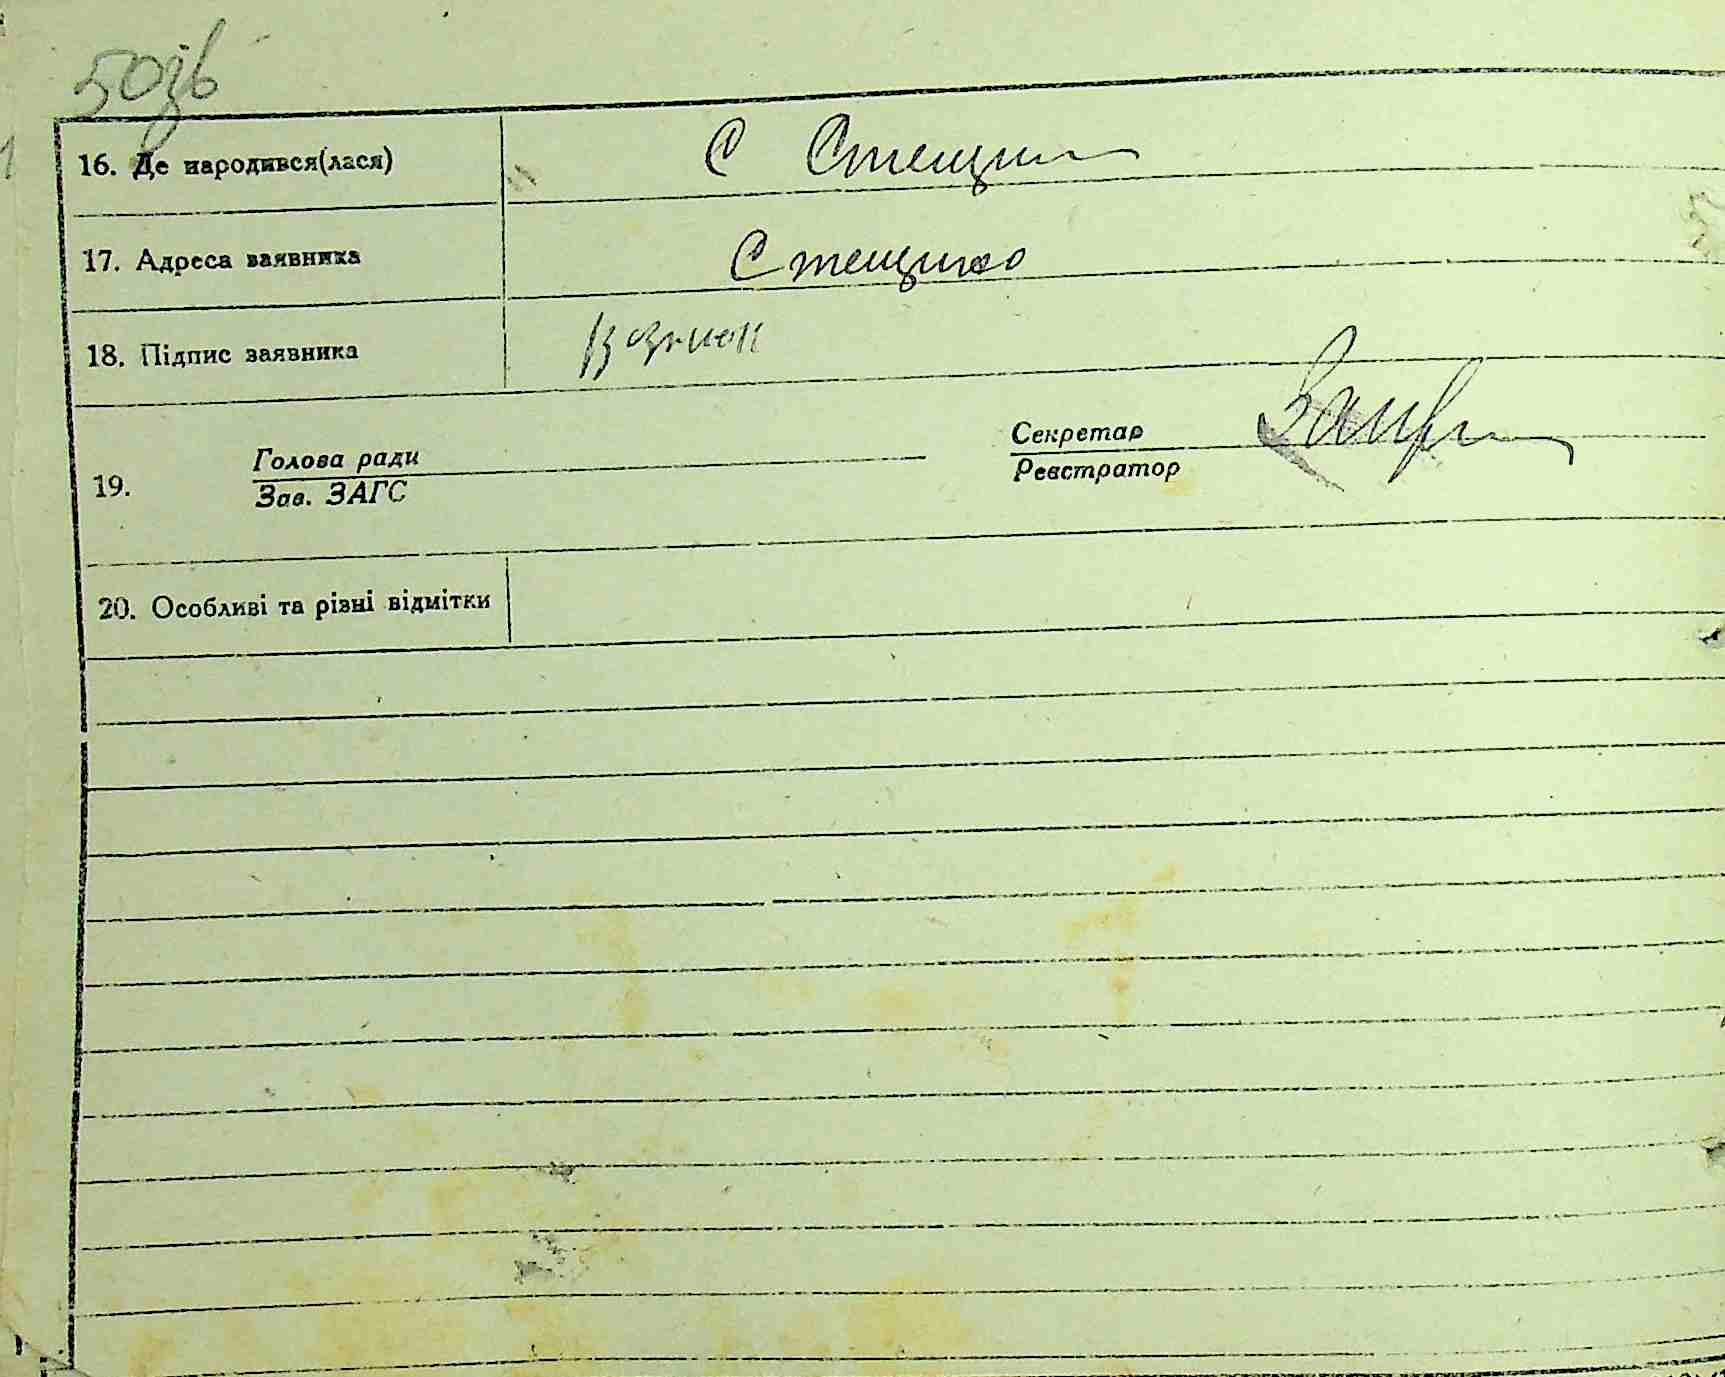 50зв
16. Де народився(лася) С Стещин
17. Адреса заявника Стещино
18. Підпис заявника Вознюк
Голова ради Секретар
19. Зав. ЗАГС Реєстратор
20. Особливі та різні відмітки